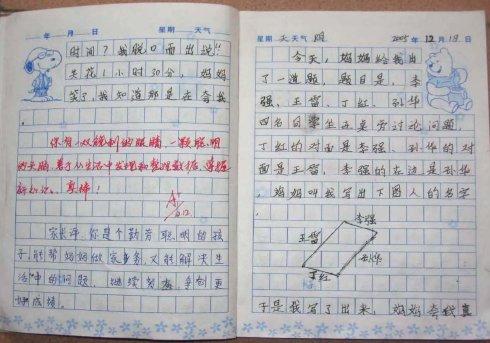 年 月 日 星期 天气
时间？我脱口而出说："
共花1小时30分，妈妈
笑了，我知道那是在夸我
你有一双锐利的眼睛，一颗聪明
的头脑，善于从生活中发现和整理数据，掌握
新知识。真棒！
家长评：你是个勤劳聪明的孩
子，能帮妈妈做家事务，又能解决生
活中的问题，继续努力，争创更
好成绩。
星期 天 天气 晴 2005年12月18日
今天，妈妈给我出
了一道题，题目是，李
强、王雷、丁红、孙华
四名同学坐在桌旁讨论问题，
丁红的对面是李强、孙华的对
面是王雷，李强的左边是孙华
，妈妈叫我写出下图人的名字
李强
王雷
孙华
丁红
于是我写了出来，妈妈夸我真